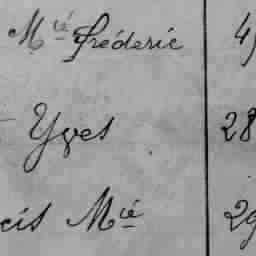 Mie Fréderic 4
Yves 28
cis Mie 29